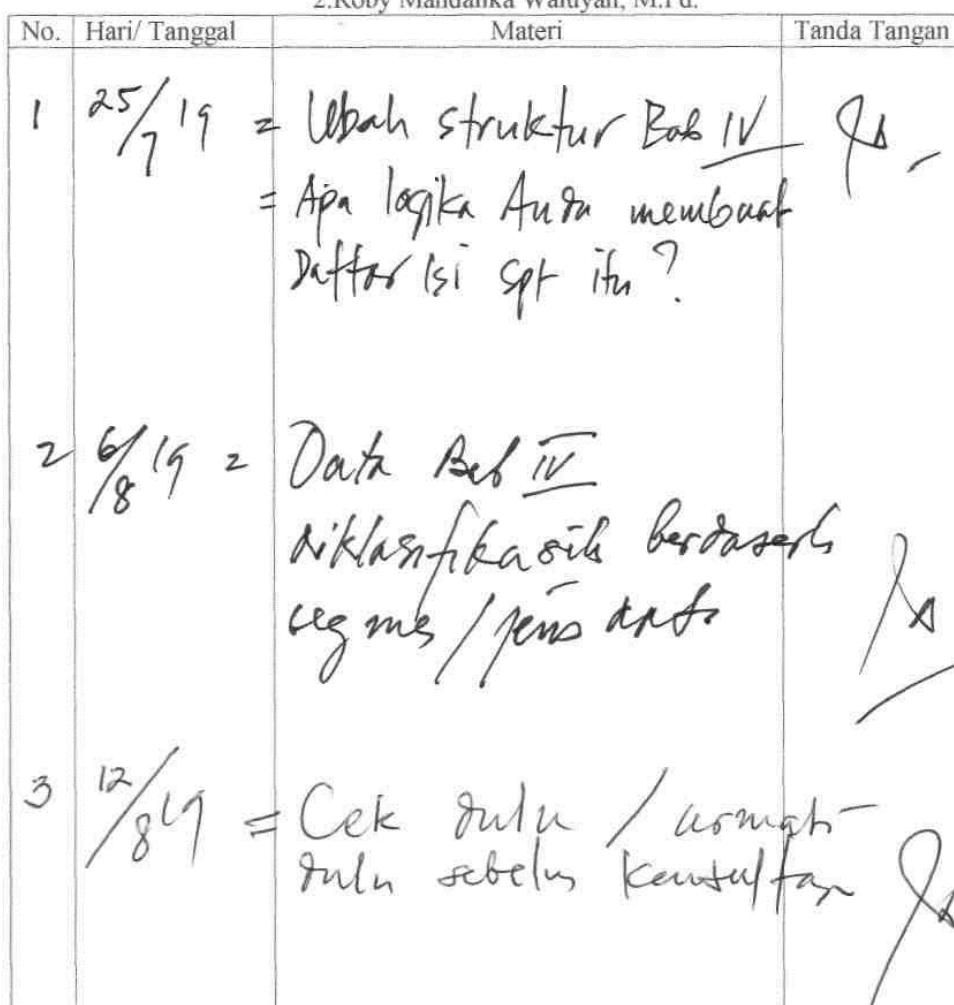 2.Roby Mandalika Waluyan, M.Pd.
No. Hari/ Tanggal Materi Tanda Tangan
1 25/7 19 = Ubah struktur Bab IV
= Apa logika Anda membuat
Daftar Isi spt itu?
2 6/8 19 = Data Bab IV
diklasifikasik berdasark
segmen / jenis data
3 12/8 19 = Cek dulu /
dulu sebelum konsultasi